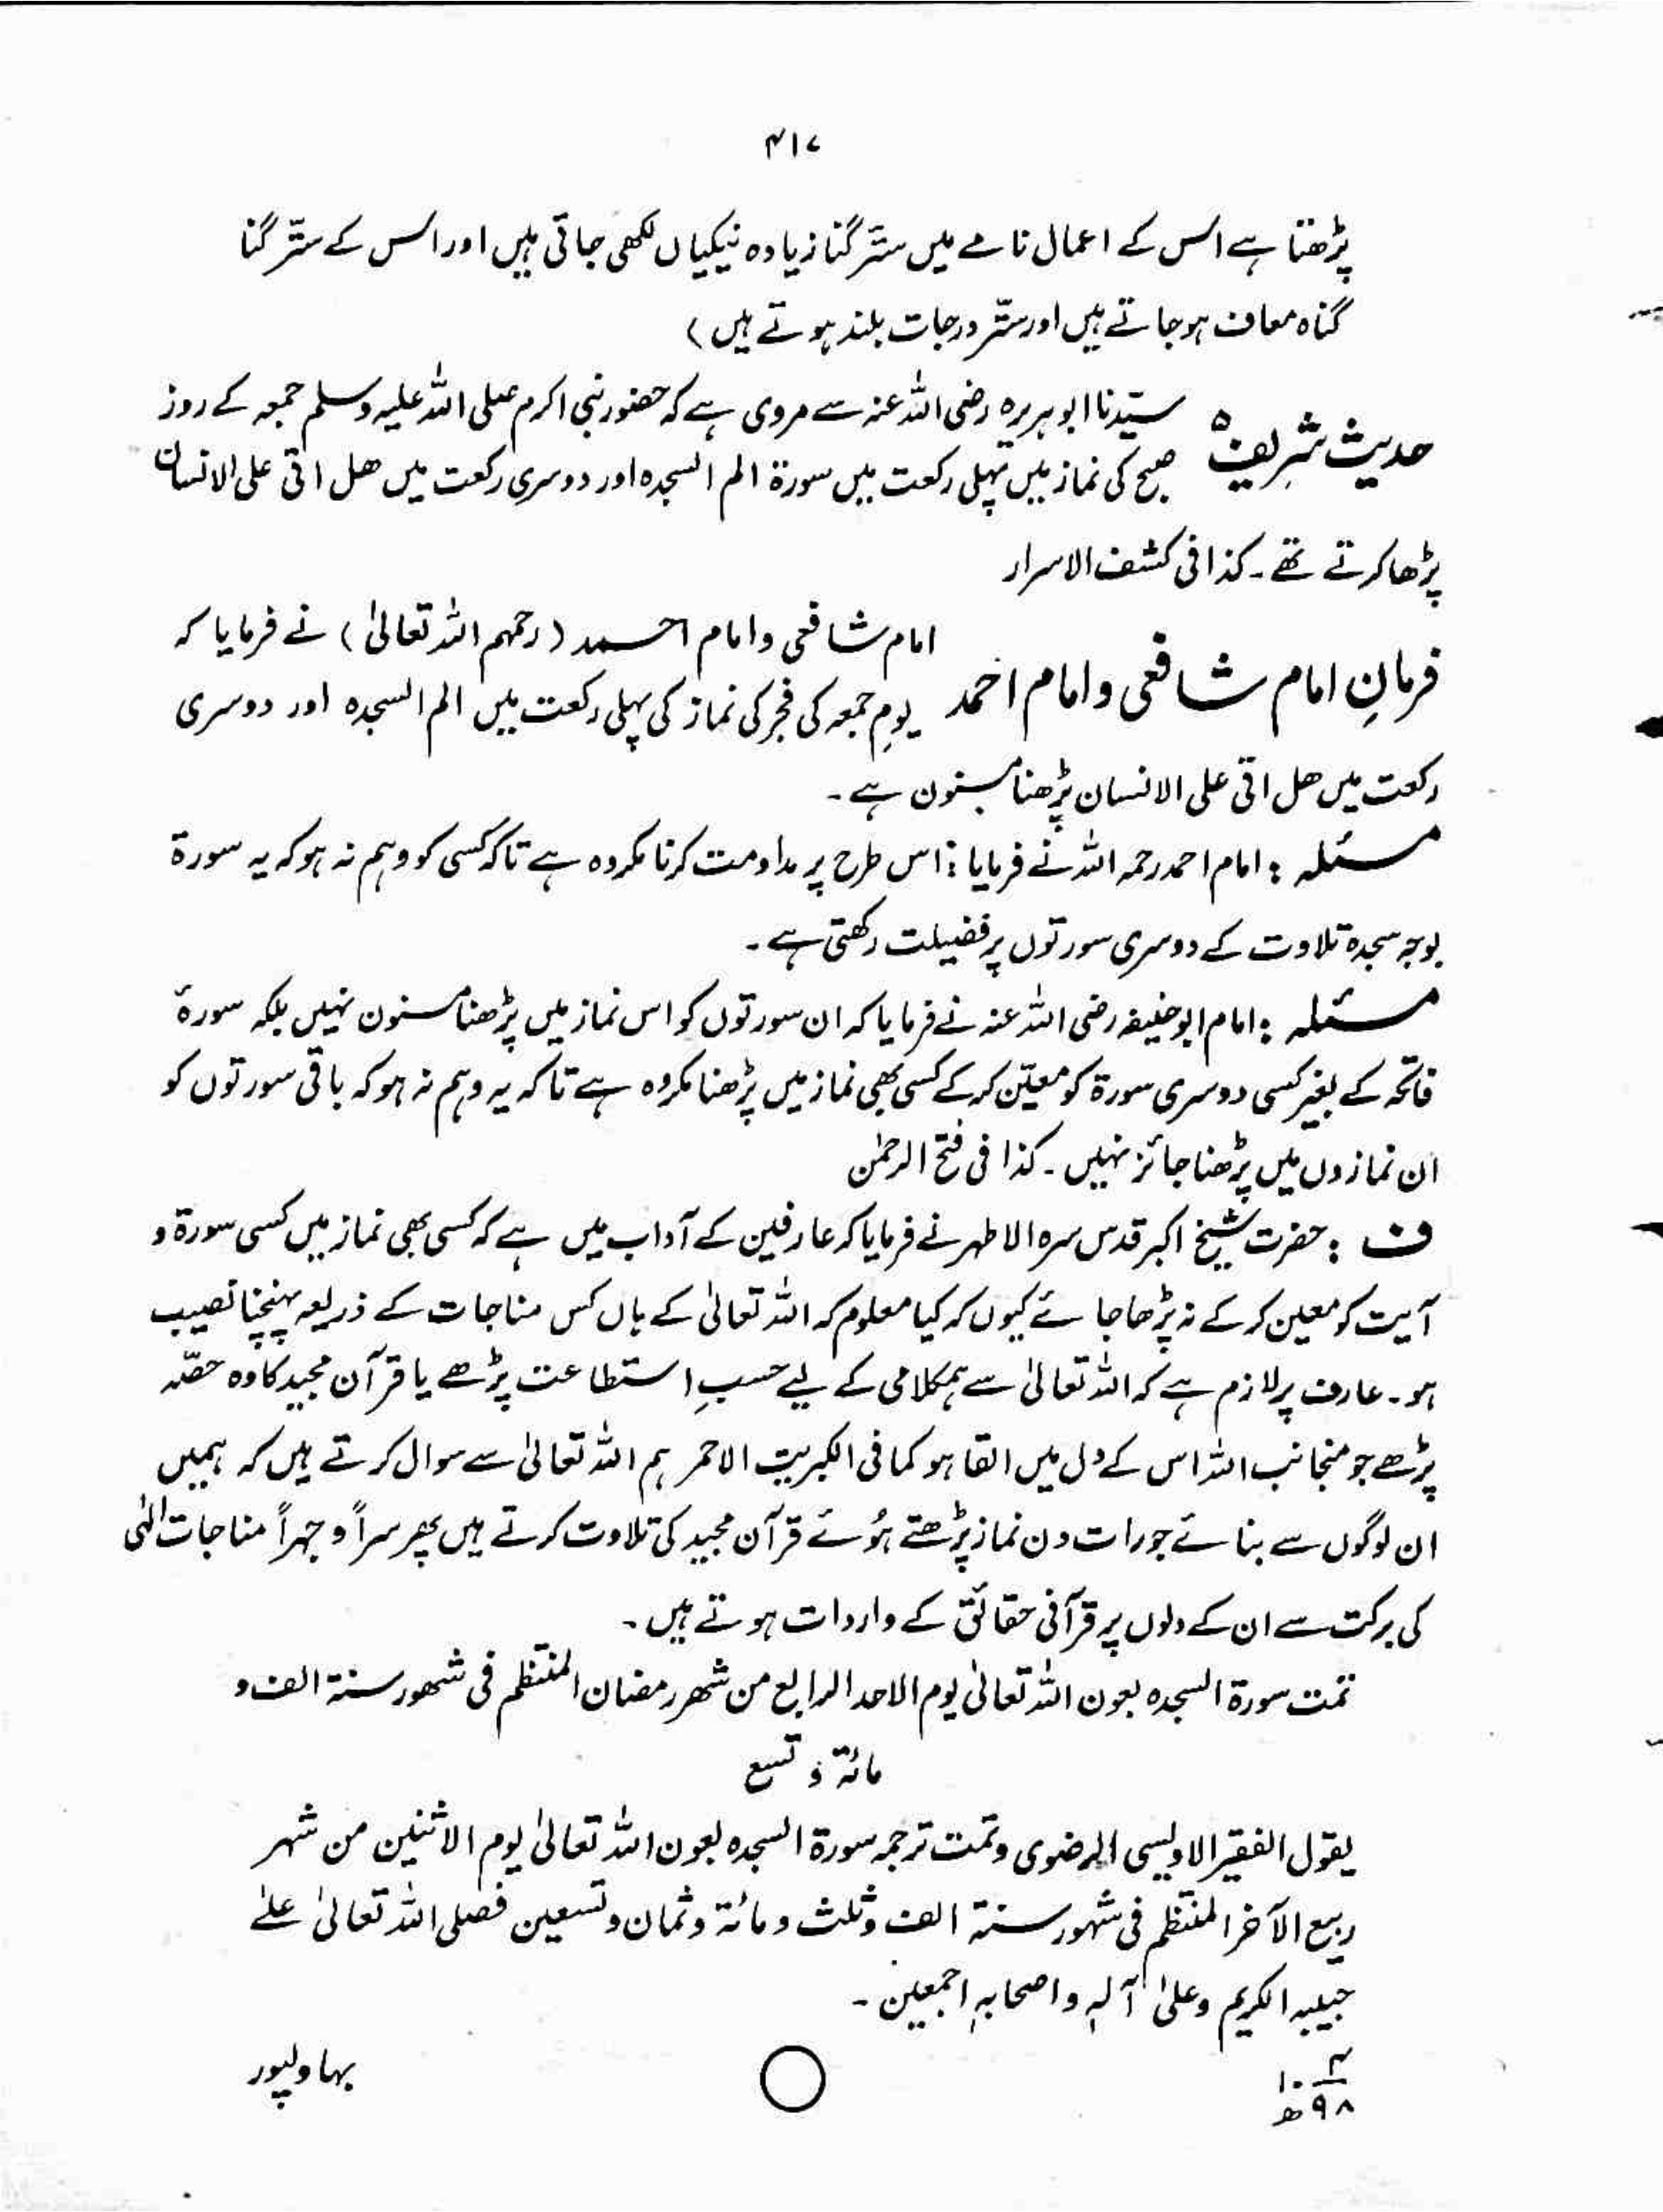 ۴۱۷
پڑھتا ہے اس کے اعمال نامے میں ستّر گنا زیادہ نیکیاں لکھی جاتی ہیں اور اس کے ستّر گنا
گناہ معاف ہوجاتے ہیں اور ستّر درجات بلند ہوتے ہیں)
حدیث شریف ۵ سیّدنا ابوہریرہ رضی اللہ عنہ سے مروی ہے کہ حضور نبی اکرم صلی اللہ علیہ وسلم جمعہ کے روز
صبح کی نماز میں پہلی رکعت میں سورۃ الم السجدہ اور دوسری رکعت میں ھل اتی علی الانسان
پڑھا کرتے تھے۔ کذا فی کشف الاسرار
فرمانِ امام شافعی وامام احمد امام شافعی وامام احمد (رحمہم اللہ تعالیٰ) نے فرمایا کہ
یومِ جمعہ کی فجر کی نماز کی پہلی رکعت میں الم السجدہ اور دوسری
رکعت میں ھل اتی علی الانسان پڑھنا مسنون ہے۔
مسئلہ : امام احمد رحمہ اللہ نے فرمایا : اس طرح پر مداومت کرنا مکروہ ہے تاکہ کسی کو وہم نہ ہو کہ یہ سورۃ
بوجہ سجدہ تلاوت کے دوسری سورتوں پر فضیلت رکھتی ہے۔
مسئلہ : امام ابوحنیفہ رضی اللہ عنہ نے فرمایا کہ ان سورتوں کو اس نماز میں پڑھنا مسنون نہیں بلکہ سورۂ
فاتحہ کے بغیر کسی دوسری سورۃ کو معیّن کرکے کسی بھی نماز میں پڑھنا مکروہ ہے تاکہ یہ وہم نہ ہو کہ باقی سورتوں کو
ان نمازوں میں پڑھنا جائز نہیں۔ کذا فی فتح الرحمٰن
ف : حضرت شیخ اکبر قدس سرہ الاطہر نے فرمایا کہ عارفین کے آداب میں ہے کہ کسی بھی نماز میں کسی سورۃ و
آیت کو معین کرکے نہ پڑھا جائے کیوں کہ کیا معلوم کہ اللہ تعالیٰ کے ہاں کس مناجات کے ذریعہ پہنچنا نصیب
ہو۔ عارف پر لازم ہے کہ اللہ تعالیٰ سے ہمکلامی کے لیے حسبِ استطاعت پڑھے یا قرآن مجید کا وہ حصّہ
پڑھے جو منجانب اللہ اس کے دل میں القا ہو کما فی الکبریت الاحمر ہم اللہ تعالیٰ سے سوال کرتے ہیں کہ ہمیں
ان لوگوں سے بنائے جو رات دن نماز پڑھتے ہوئے قرآن مجید کی تلاوت کرتے ہیں پھر سراً و جہراً مناجات الٰہی
کی برکت سے ان کے دلوں پر قرآنی حقائق کے واردات ہوتے ہیں۔
تمت سورۃ السجدہ بعون اللہ تعالیٰ یوم الاحد الرابع من شھر رمضان المنتظم فی شھور سنۃ الف و
مائۃ و تسع
یقول الفقیر الاویسی الرضوی وتمت ترجمہ سورۃ السجدہ بعون اللہ تعالیٰ یوم الاثنین من شہر
ربیع الآخر المنتظم فی شہور سنۃ الف وثلث ومائۃ وثمان وتسعین فصلی اللہ تعالیٰ علےٰ
حبیبہ الکریم وعلیٰ آلہٖ واصحابہٖ اجمعین۔
۴
۱۰
۹۸ھ
بہاولپور